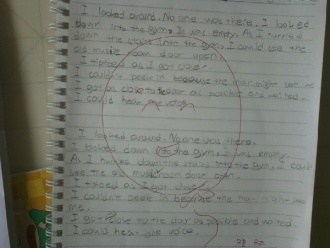 I looked around. No one was there. I looked
down into the gym. It was empty. As I
down the stairs into the gym, I could see the
old music room door open.
I tiptoed as I got closer.
I couldn't peek in because the man might see me
I got as close to door as possible and waited.
I could hear one voice
I looked around. No one was there.
I looked down to the gym, it was empty.
As I down the stairs into the gym, I could
see the old music room door open.
I as I got closer.
I couldn't peek in because the man might see
me.
I got close to the door as possible and waited.
I could hear one voice